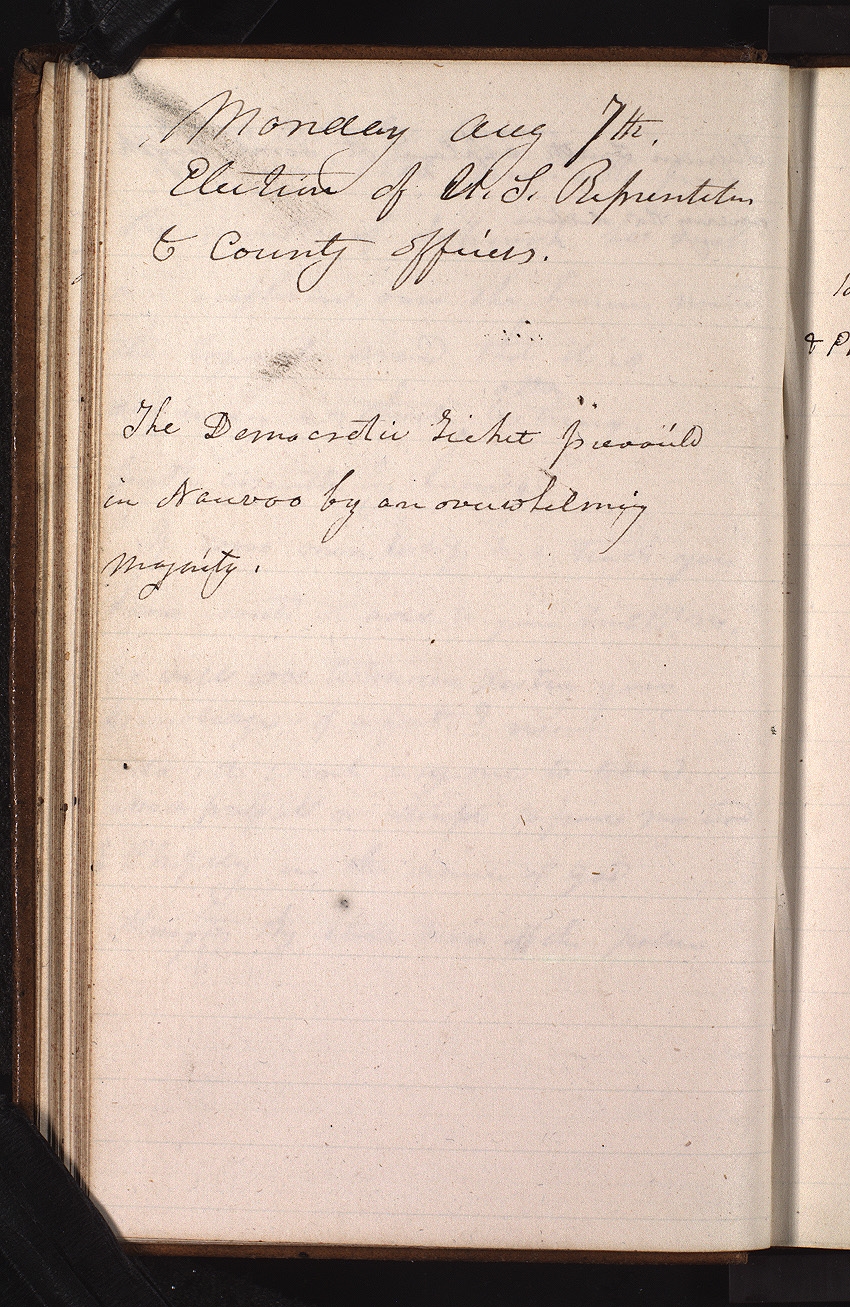 Monday Aug 7th.
Election of U. S. Representative
& County officers.
The Democratic Ticket prevaild
in Nauvoo by an overwhelming
majority.
& P